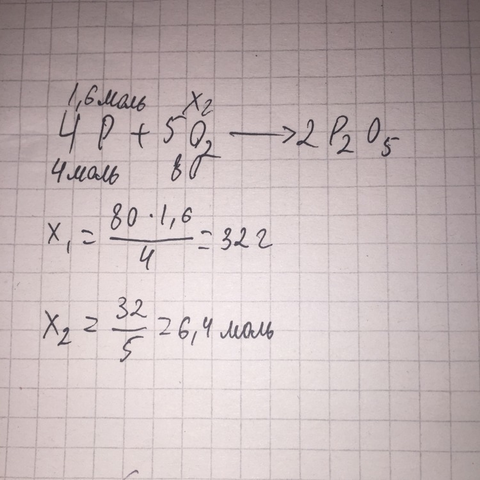 1,6 моль x₂
4P + 5O₂ ⟶ 2P₂O₅
4 моль 80
x₁ = 80·1,6/4 = 32 г
x₂ = 32/5 = 6,4 моль